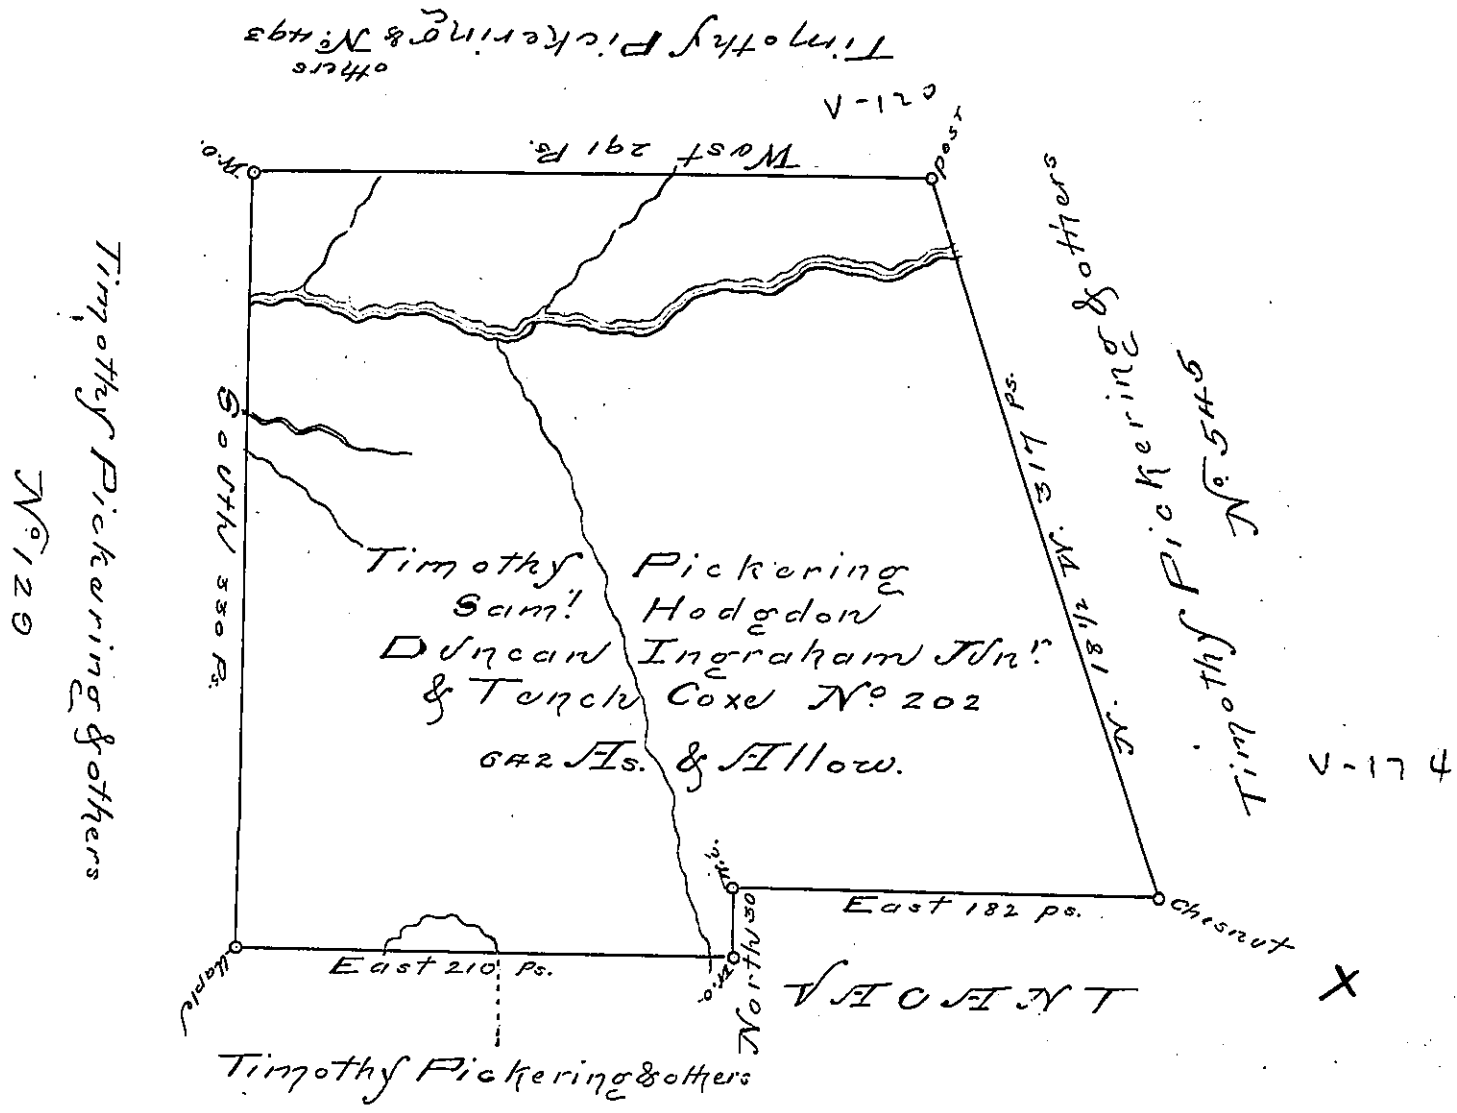 Timothy Pickering & Nº 493
others
V-170
West 291 Ps.
W.O.
post
Timothy Pickering & others
Nº 129
South 330 Ps.
N. 18 1/2 W. 317 Ps.
Timothy Pickering & others
Nº 545
V-174
Timothy Pickering
Sam! Hodgdon
Duncan Ingraham Jun!r
& Tench Coxe Nº 202
642 As. & Allow.
East 182 ps.
Chesnut
North 30
East 210 Ps.
Maple
VACANT
X
Timothy Pickering & others